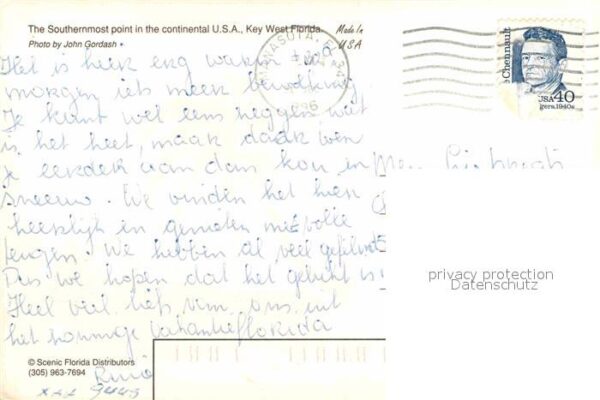 The Southernmost point in the continental U.S.A., Key West Florida.
Photo by John Gordash
Made In
USA
Chennault
USA 40
Het is heel erg warm
morgen iets meer bewolking
Je kunt wel eens zeggen wat
is het heet, maar daar ben
je eerder aan dan kou en
sneeuw. We vinden het hier
heerlijk en genieten met volle
teugen. We hebben al veel gefilmd
Dus we hopen dat het gelukt is
Heel veel liefs van ons uit
het zonnige vakantieflorida
privacy protection
Datenschutz
© Scenic Florida Distributors
(305) 963-7694